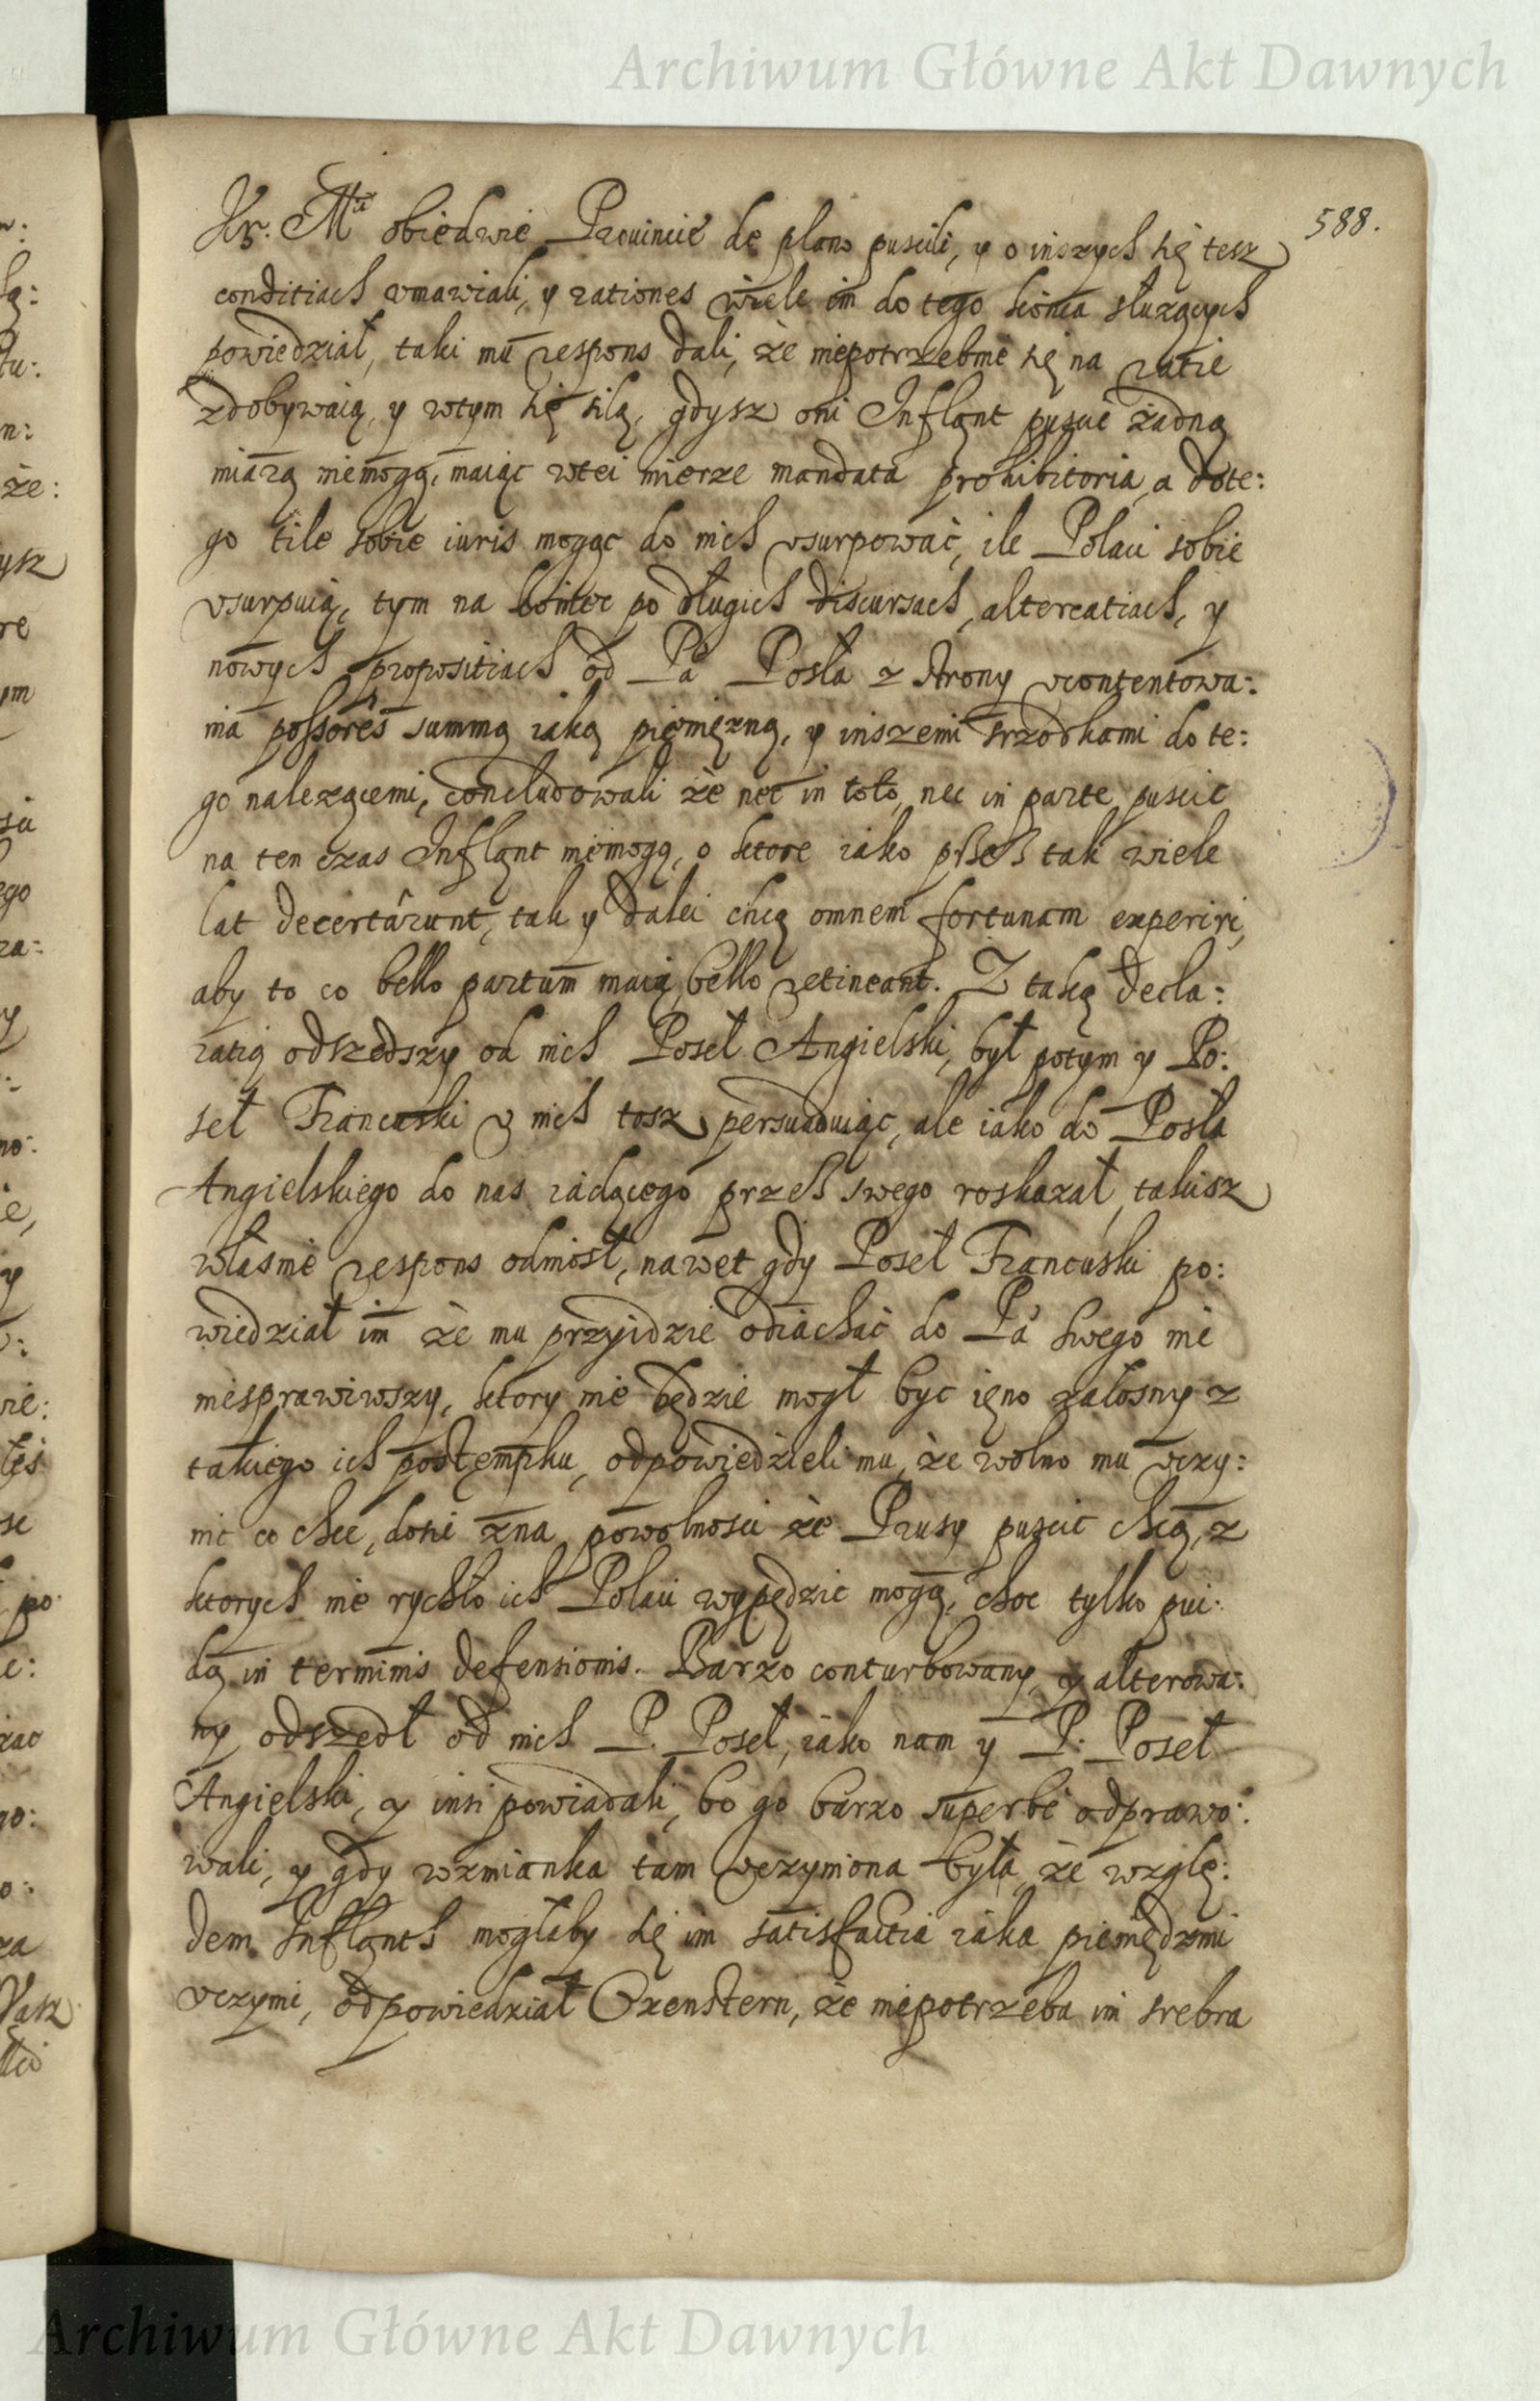 Archiwum Główne Akt Dawnych
588.
Kr. Mci obiedwie Prouincie de plano puscili, y o inszych się tesz
conditiach vmawiali, y rationes wiele im do tego końca służących
powiedział, taki mu respons dali, że niepotrzebnie się na ratie
zdobywaią, y wtym się silą, gdysz oni Inflant puscić żadną
miarą niemogą, maiąc wtei mierze mandata prohibitoria, a dote:
go tile sobie iuris mogąc do nich vsurpować, ile Polaci sobie
vsurpuią, tym na koniec po długich discursach, altercatiach, y
nowych propositiach od Pa Posła z strony vcontentowa:
nia possores summą iaką pięniężną, y inszemi srzodkami do te:
go nalezącemi, concludowali że nec in toto, nec in parte puscic
na ten czas Inflant niemogą, o ktore iako przes tak wiele
lat decertârunt, tak y dalei chcą omnem fortunam experiri,
aby to co bello partum maią, bello retineant. Z taką decla:
ratią odszedszy od nich Poseł Angielski, był potym y Po:
seł Francuski v nich tosz persuaduiąc, ale iako do Posła
Angielskiego do nas iadącego przes swego roskazał, takisz
własnie respons odniosł, nawet gdy Poseł Francuski po:
wiedział im że mu przyidzie odiachać do Pa swego nic
niesprawiwszy, ktory nie będzie mogł byc ięno załosny z
takiego ich postęmpku, odpowiedzieli mu, że wolno mu vczy:
nic co chce, dosic zna powolnosci że Prusy puscic chcą, z
ktorych nie rychło ich Polaci wypędzic mogą, choc tylko pui:
dą in terminis defensionis. Barzo conturbowany, y alterowa:
ny odszedł od nich P. Poseł, iako nam y P. Poseł
Angielski, y insi powiadali, bo go barzo superbè odprawo:
wali, y gdy wzmianka tam vczyniona była, że wzglę:
dem Inflanth mogłaby się im satisfactia iaka pieniędzmi
vczynic, odpowiedział Oxenstern, że niepotrzeba im srebra
Archiwum Główne Akt Dawnych